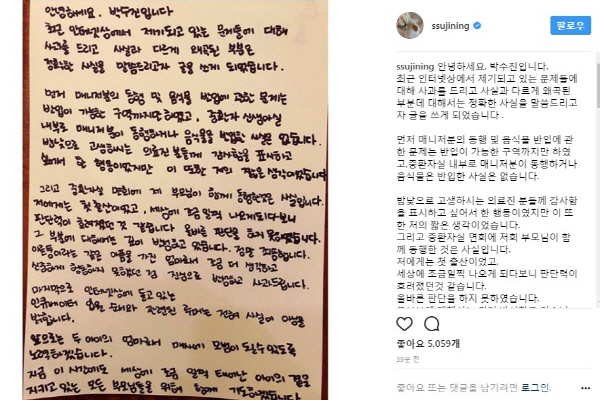 안녕하세요, 박수진입니다
최근 인터넷상에서 제기되고 있는 문제들에 대해
사과를 드리고 사실과 다르게 왜곡된 부분은
정확한 사실을 말씀드리고자 글을 쓰게 되었습니다.
먼저 매니저분의 동행 및 음식물 반입에 관한 문제는
반입이 가능한 구역까지만 하였고, 중환자 신생아실
내부로 매니저분이 동행하거나 음식물을 반입한 사실은 없습니다.
밤낮으로 고생하시는 의료진 분들께 감사함을 표시하고
싶어서 한 행동이었지만 이 또한 저의 짧은 생각이었습니다
그리고 중환자실 면회에 저희 부모님이 함께 동행한것은 사실입니다.
저에게는 첫 출산이었고, 세상에 조금 일찍 나오게되다보니
판단력이 흐려졌던 것 같습니다. 올바른 판단을 하지 못하였습니다.
그 부분에 대해서는 깊이 반성하고 있습니다. 정말 죄송합니다.
마지막으로 인터넷상에 돌고 있는
인큐베이터 입원 순서와 관련된 루머는 전혀 사실이 아님을
밝힙니다.
앞으로는 두 아이의 엄마로서 매사에 모범이 되도록
노력하겠습니다.
지금 이 시간에도 세상에 조금 일찍 태어난 아이의 곁을
지키고 있는 모든 부모님들을 위해 함께 기도하겠습니다
ssujining
팔로우
ssujining 안녕하세요, 박수진입니다.
최근 인터넷상에서 제기되고 있는 문제들에
대해 사과를 드리고 사실과 다르게 왜곡된
부분에 대해서는 정확한 사실을 말씀드리고
자 글을 쓰게 되었습니다 .
먼저 매니저분의 동행 및 음식물 반입에 관
한 문제는 반입이 가능한 구역까지만 하였
고,중환자실 내부로 매니저분이 동행하거나
음식물은 반입한 사실은 없습니다.
밤낮으로 고생하시는 의료진 분들께 감사함
을 표시하고 싶어서 한 행동이었지만 이 또
한 저의 짧은 생각이었습니다.
그리고 중환자실 면회에 저희 부모님이 함
께 동행한 것은 사실입니다.
저에게는 첫 출산이였고,
세상에 조금일찍 나오게 되다보니 판단력이
흐려졌던것 같습니다.
올바른 판단을 하지 못하였습니다.
좋아요 5,059개
39분 전
좋아요 또는 댓글을 남기려면 로그인.